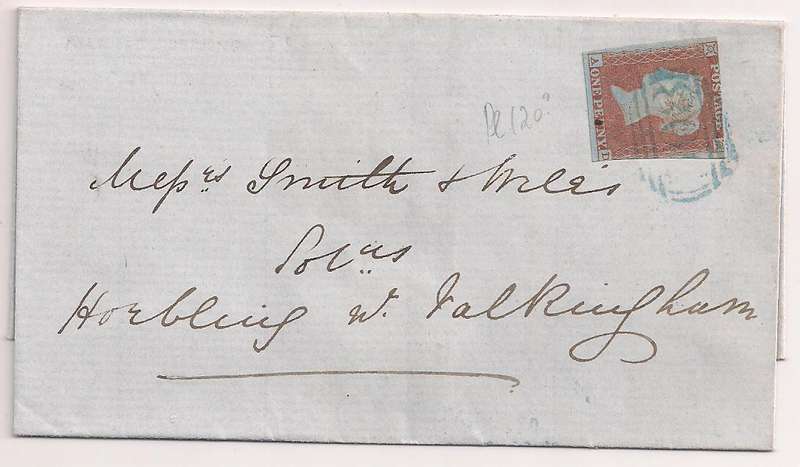 POSTAGE
ONE PENNY
A
Pl 120?
Messrs Smith & Wiles
Solrs
Horbling nr. Falkingham